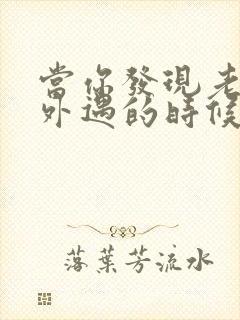 當你發現老
外遇的時候
落葉芳流水